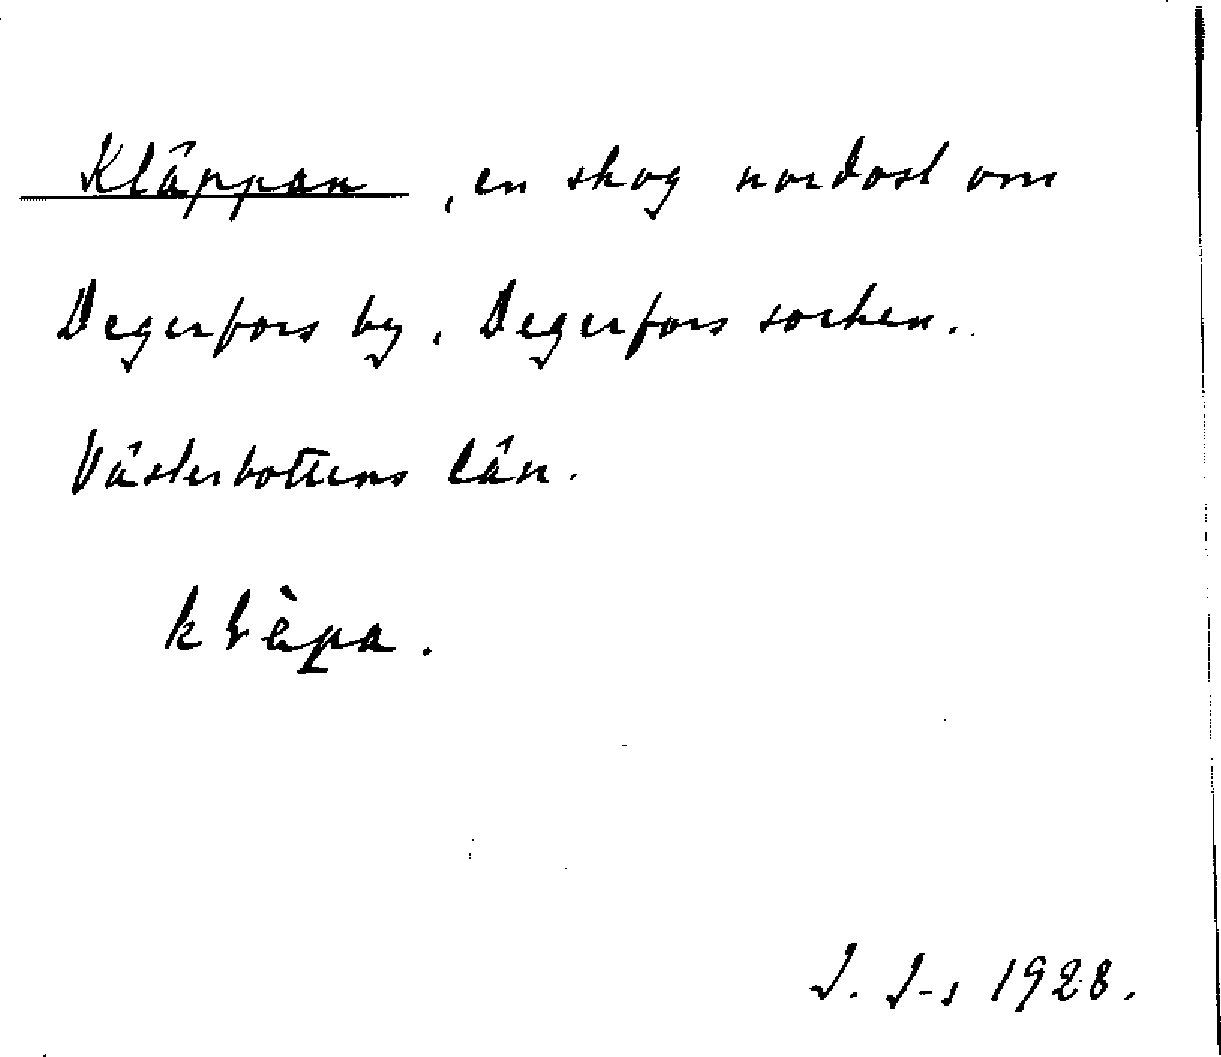 Kläppan, en skog nordost om
Degerfors by, Degerfors socken.
Västerbottens län.
klèpa.
J. J-s 1928.